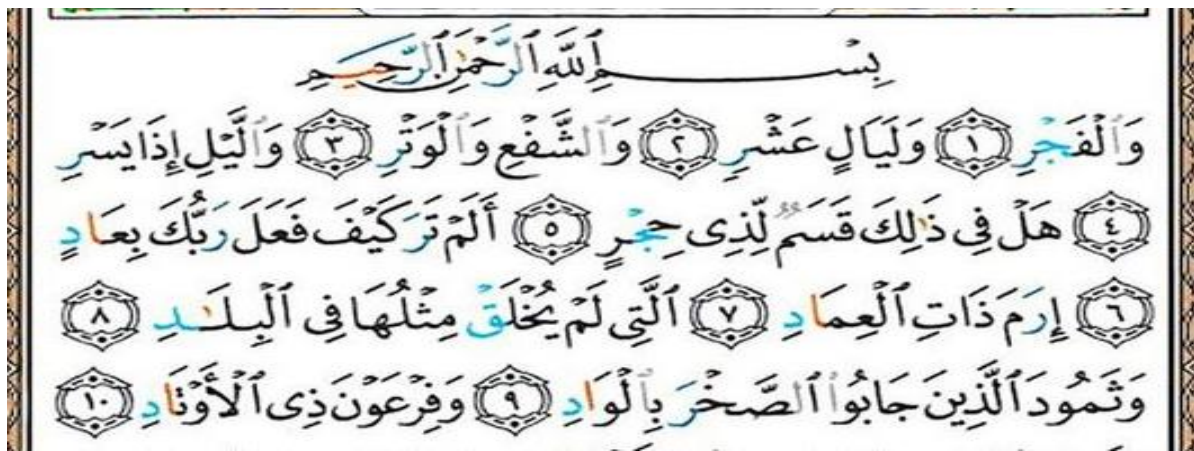 بِسْمِ ٱللَّهِ ٱلرَّحْمَٰنِ ٱلرَّحِيمِ
وَٱلْفَجْرِ ١ وَلَيَالٍ عَشْرٍ ٢ وَٱلشَّفْعِ وَٱلْوَتْرِ ٣ وَٱلَّيْلِ إِذَا يَسْرِ
٤ هَلْ فِى ذَٰلِكَ قَسَمٌ لِّذِى حِجْرٍ ٥ أَلَمْ تَرَ كَيْفَ فَعَلَ رَبُّكَ بِعَادٍ
٦ إِرَمَ ذَاتِ ٱلْعِمَادِ ٧ ٱلَّتِى لَمْ يُخْلَقْ مِثْلُهَا فِى ٱلْبِلَـٰدِ ٨
وَثَمُودَ ٱلَّذِينَ جَابُوا۟ ٱلصَّخْرَ بِٱلْوَادِ ٩ وَفِرْعَوْنَ ذِى ٱلْأَوْتَادِ ١٠